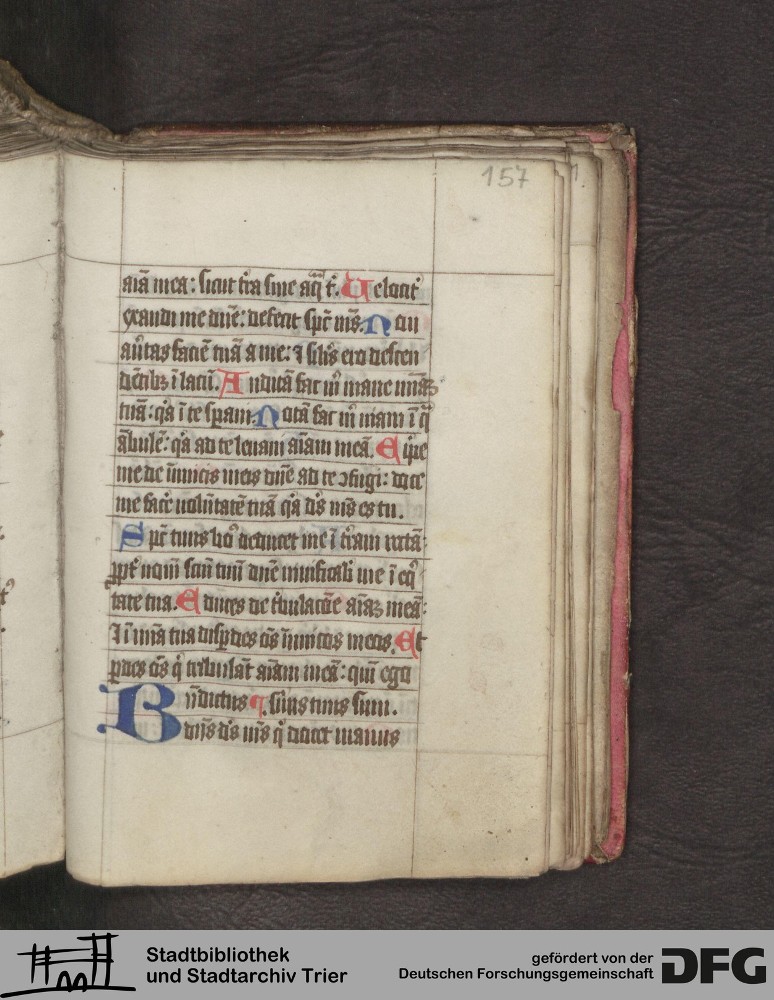 157
aīā mea: sicut t̄ra sine aq̄ t̄. Velocit᷑
exaudi me dn̄e: defecit sp̄c m̄s. Non
au̓tas faciē tuā a me: ⁊ sil̓is ero descen
dētibꝫ ī lacū. Auditā fac m̓ mane mīaꝫ
tuā: q̓a ī te sp̓aui. Notā fac m̓ uiam ī q̄
ābulē: q̓a ad te leuaui aīam meā. Eripe
me de īimicis meis dn̄e ad te ꝯfugi: doce
me fac̓e uolūtatē tuā q̓a d̄s m̄s es tu.
Sp̄c tuus bo᷒ deducet me ī t̓ram rectā:
ꝓpt̓ nom̄ tuū dn̄e uiuificab̓ me ī eq̓
tate tua. Educes de t̓bulacōe aīaꝫ meā:
⁊ ī mīa tua disꝑdes om̄s īimicos meos. Et
ꝑdes om̄s q̓ tribulāt aīam meā: qm̄ ego
Bn̄dictus ¶ s̓uus tuus sum.
dn̄s d̄s m̄s q̓ docet manus
Stadtbibliothek
und Stadtarchiv Trier
gefördert von der
Deutschen Forschungsgemeinschaft
DFG